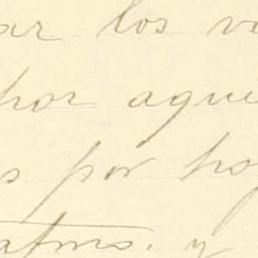 ar los v
por aque
s por hoy
atros. y